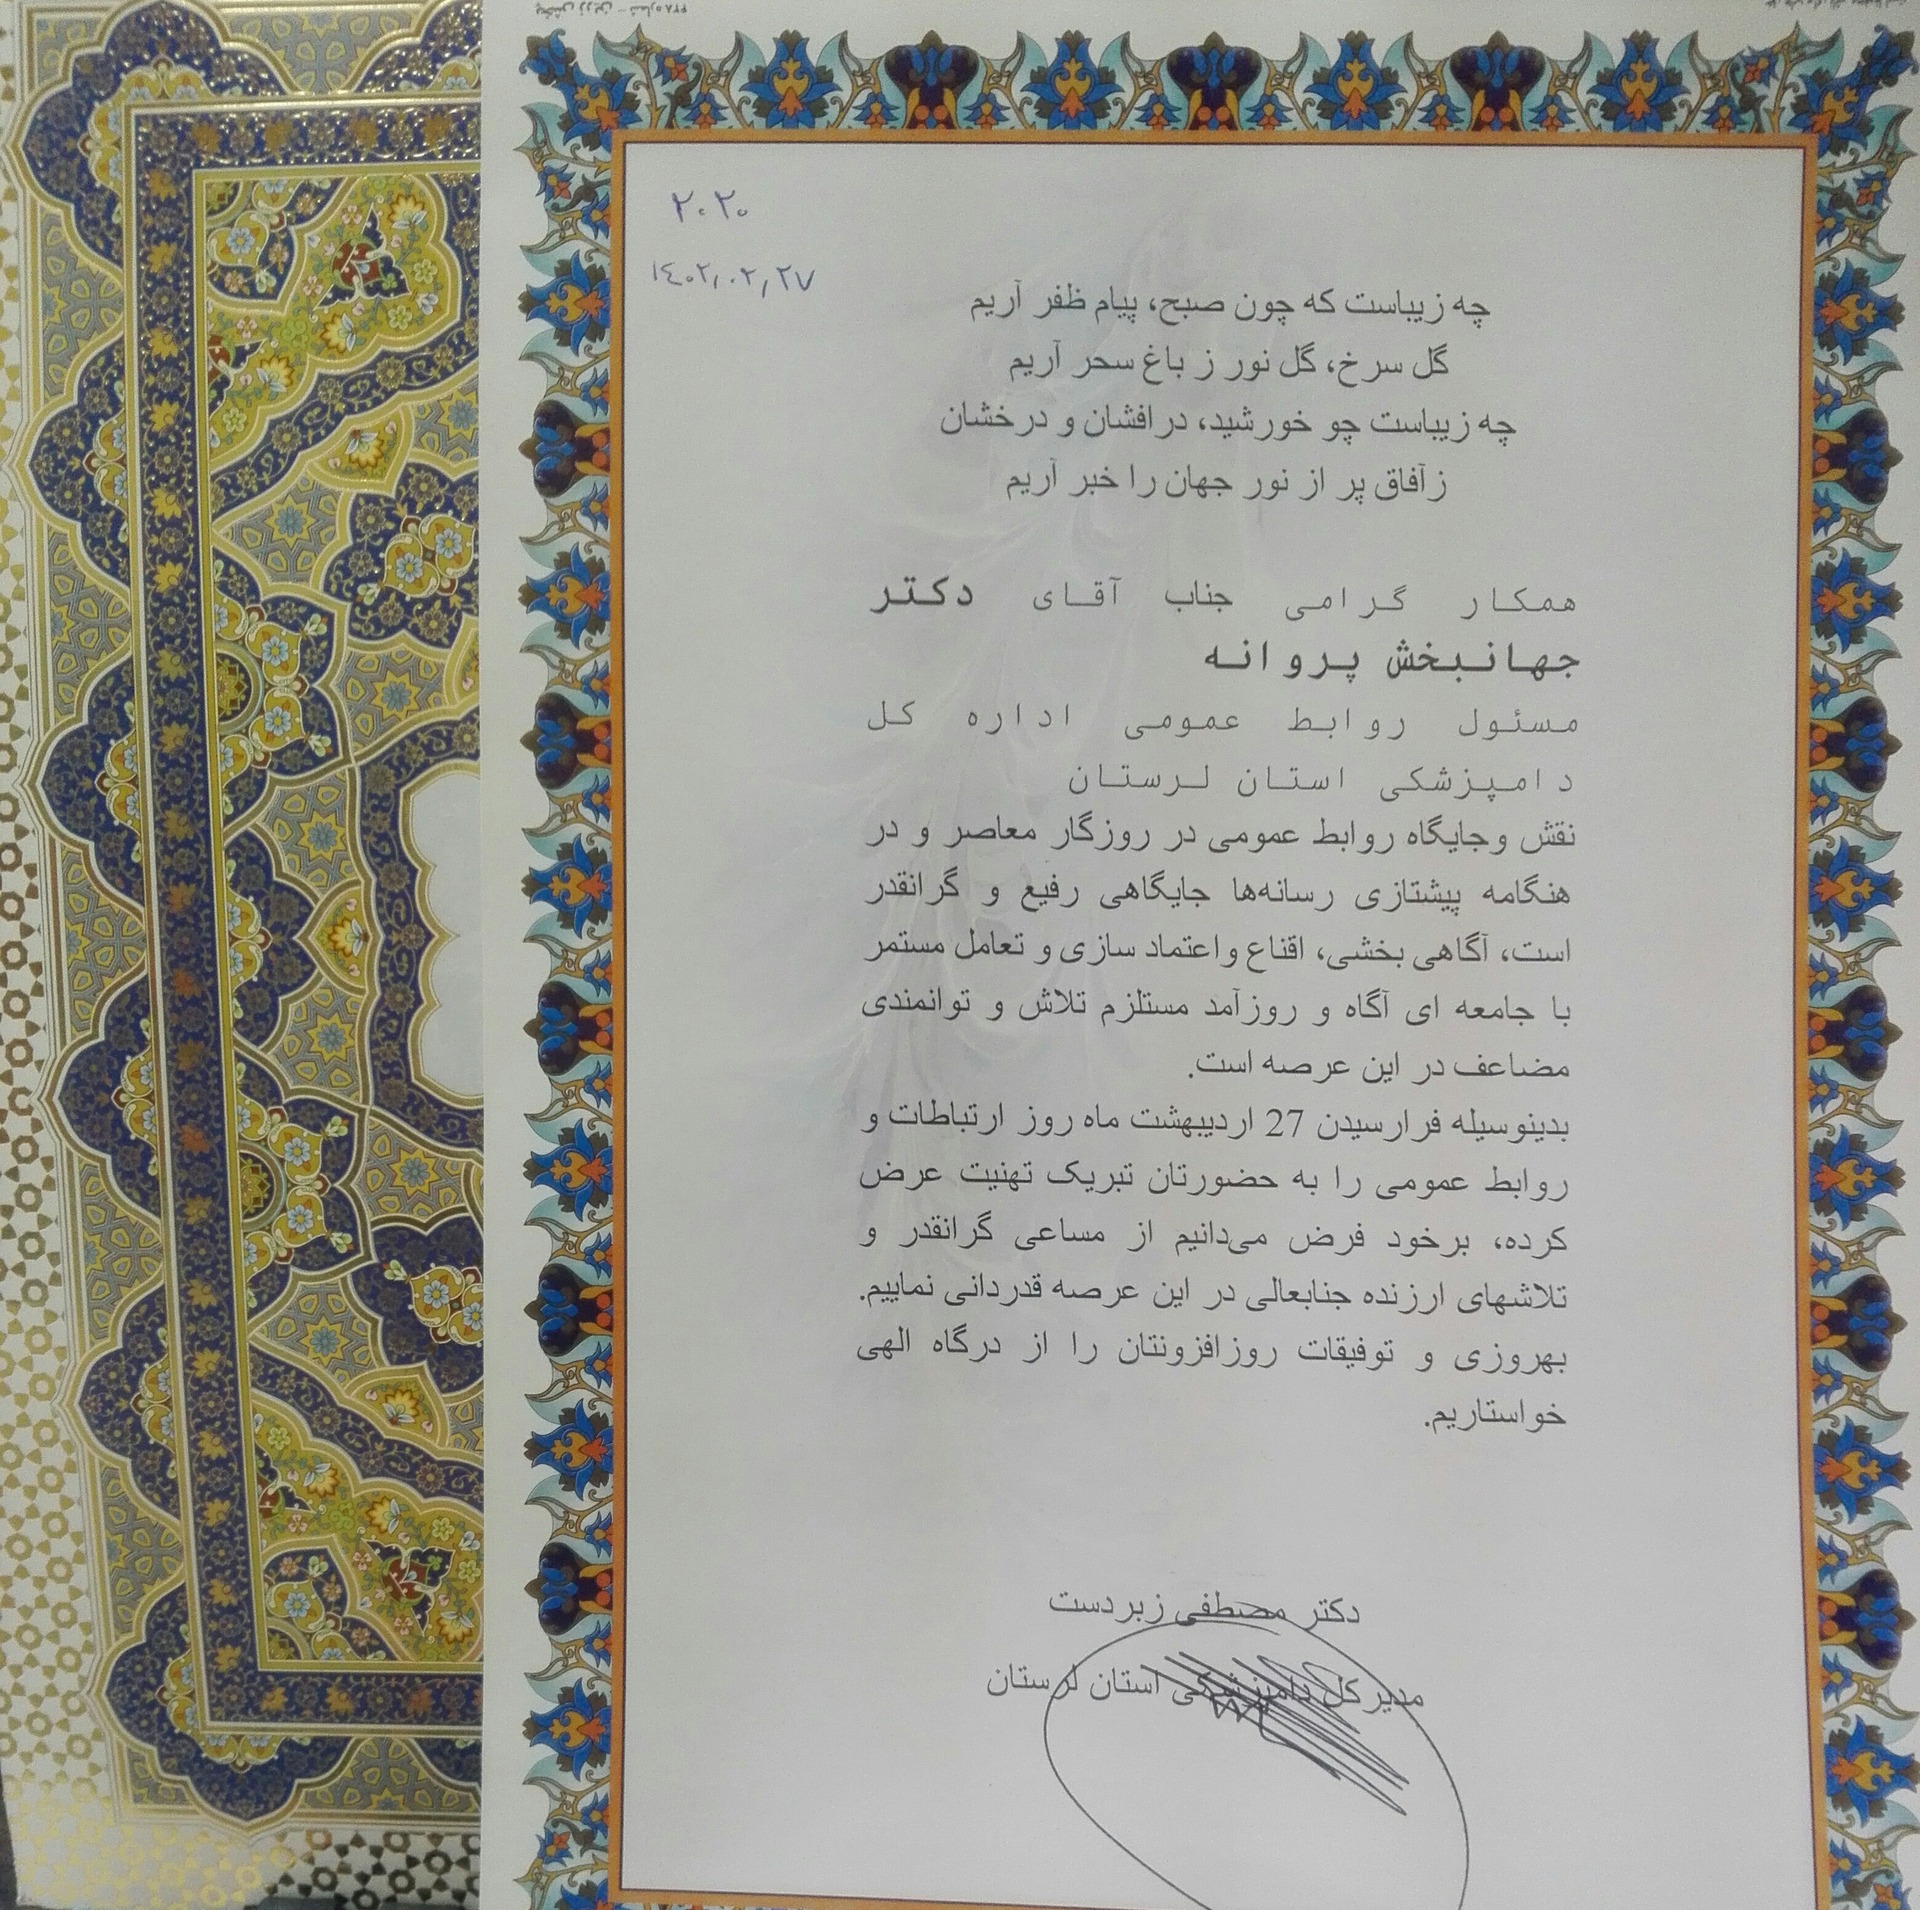 ۲۰۲۰
۱۴۰۲,۰۲,۲۷
چه زیباست که چون صبح، پیام ظفر آریم
گل سرخ، گل نور ز باغ سحر آریم
چه زیباست چو خورشید، درافشان و درخشان
زآفاق پر از نور جهان را خبر آریم
همکار گرامی جناب آقای دکتر
جهانبخش پروانه
مسئول روابط عمومی اداره کل
دامپزشکی استان لرستان
نقش وجایگاه روابط عمومی در روزگار معاصر و در
هنگامه پیشتازی رسانه‌ها جایگاهی رفیع و گرانقدر
است، آگاهی بخشی، اقناع واعتماد سازی و تعامل مستمر
با جامعه ای آگاه و روزآمد مستلزم تلاش و توانمندی
مضاعف در این عرصه است.
بدینوسیله فرارسیدن 27 اردیبهشت ماه روز ارتباطات و
روابط عمومی را به حضورتان تبریک تهنیت عرض
کرده، برخود فرض می‌دانیم از مساعی گرانقدر و
تلاشهای ارزنده جنابعالی در این عرصه قدردانی نماییم.
بهروزی و توفیقات روزافزونتان را از درگاه الهی
خواستاریم.
دکتر مصطفی زبردست
مدیر کل دامپزشکی استان لرستان